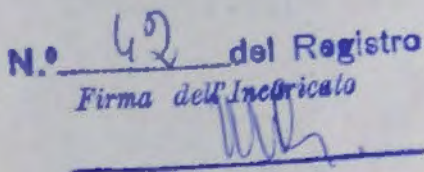 N.º 42 del Registro
Firma dell'Incaricato